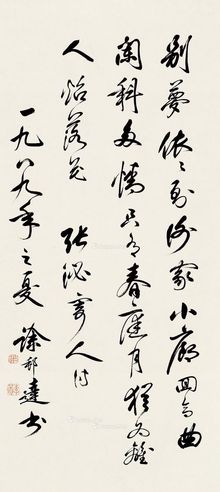 别夢依々到谢家小廊回合曲
阑斜多情只有春庭月猶为離
人照落花 张泌寄人诗
一九八九年之夏 徐邦達书